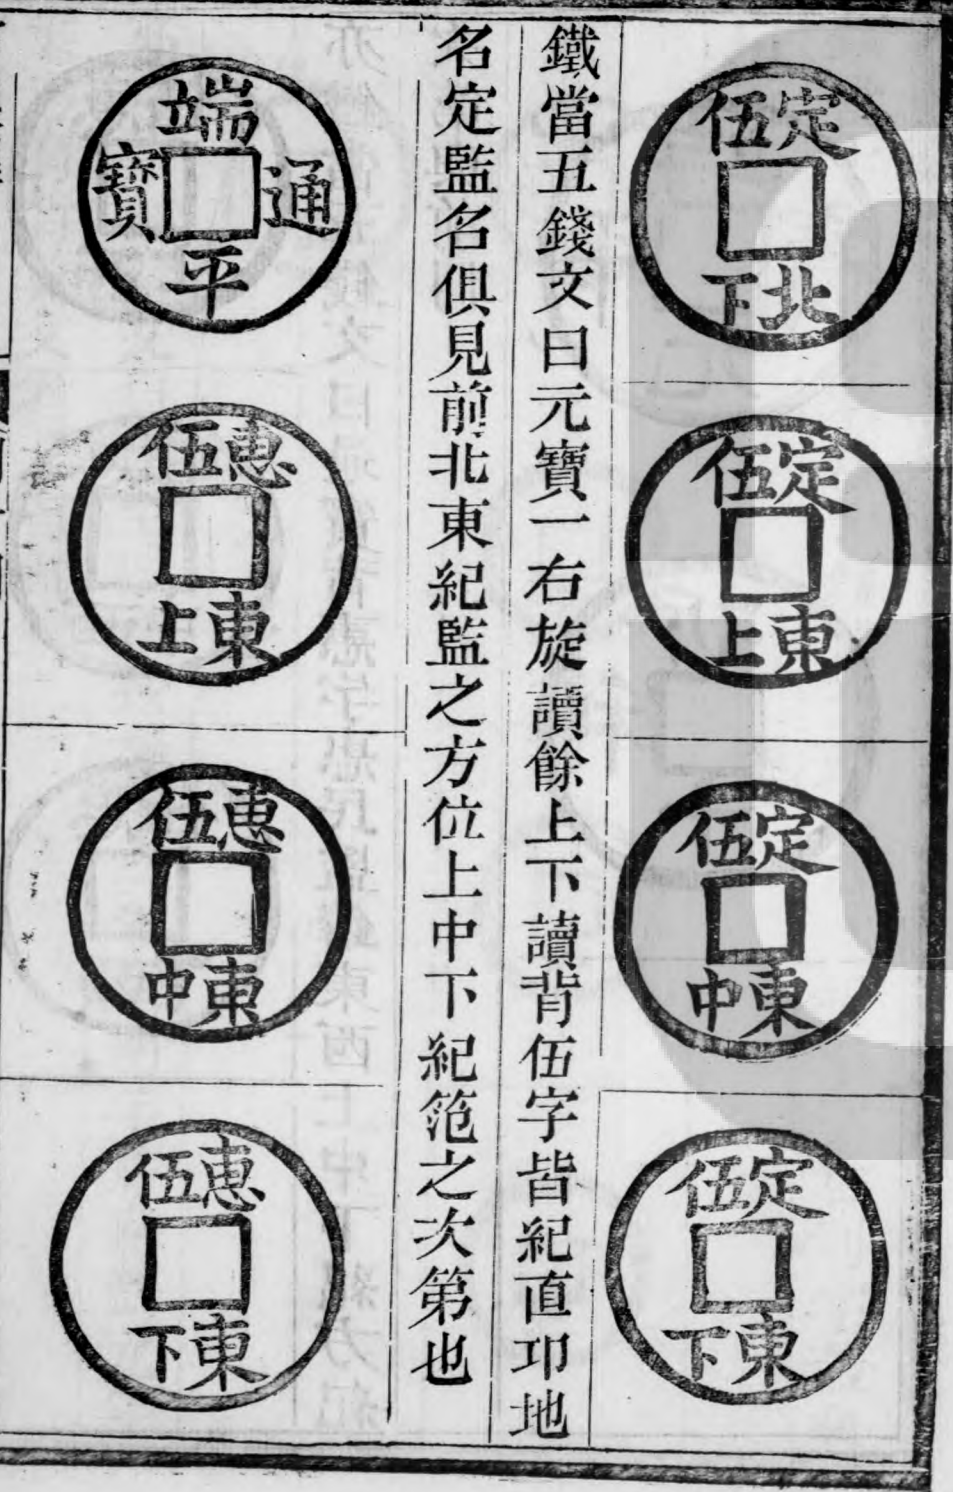 定伍北下
定伍東上
定伍東中
定伍東下
鐵當五錢文曰元寶一右旋讀餘上下讀背伍字皆紀直卭地
名定監名俱見前北東紀監之方位上中下紀笵之次第也
端平通寶
惠伍東上
惠伍東中
惠伍東下